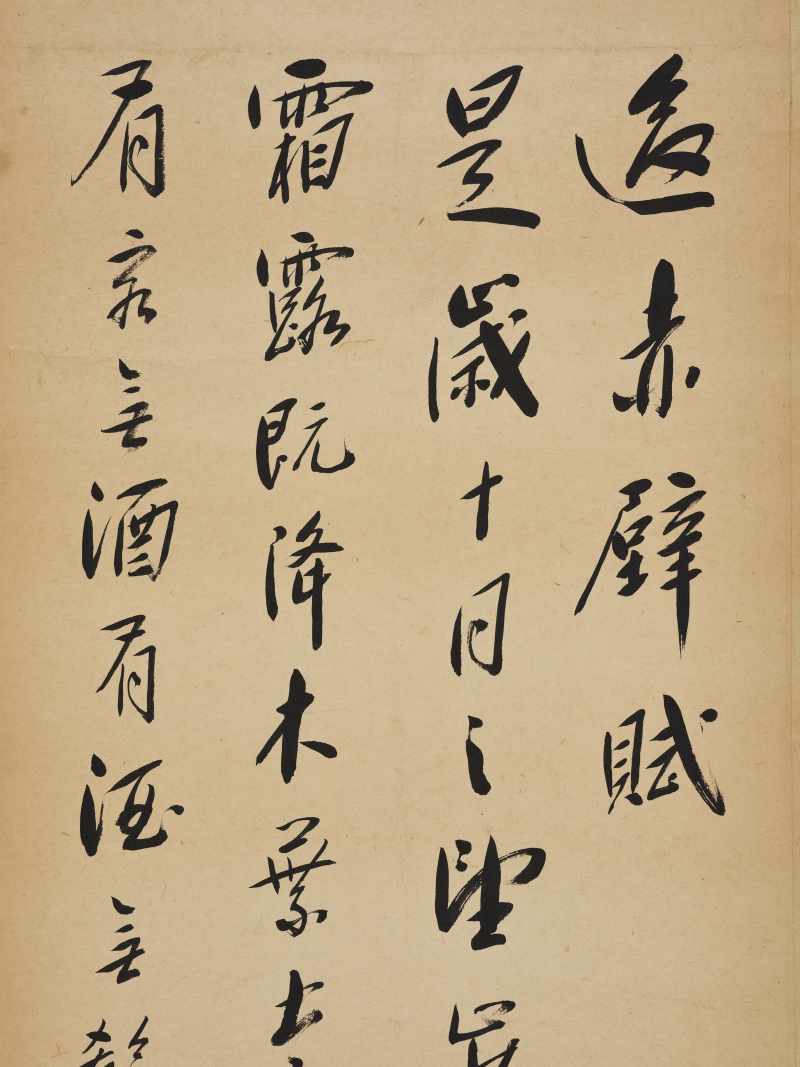 後赤壁賦
是歲十月之望步
霜露既降木葉
有客無酒有酒無